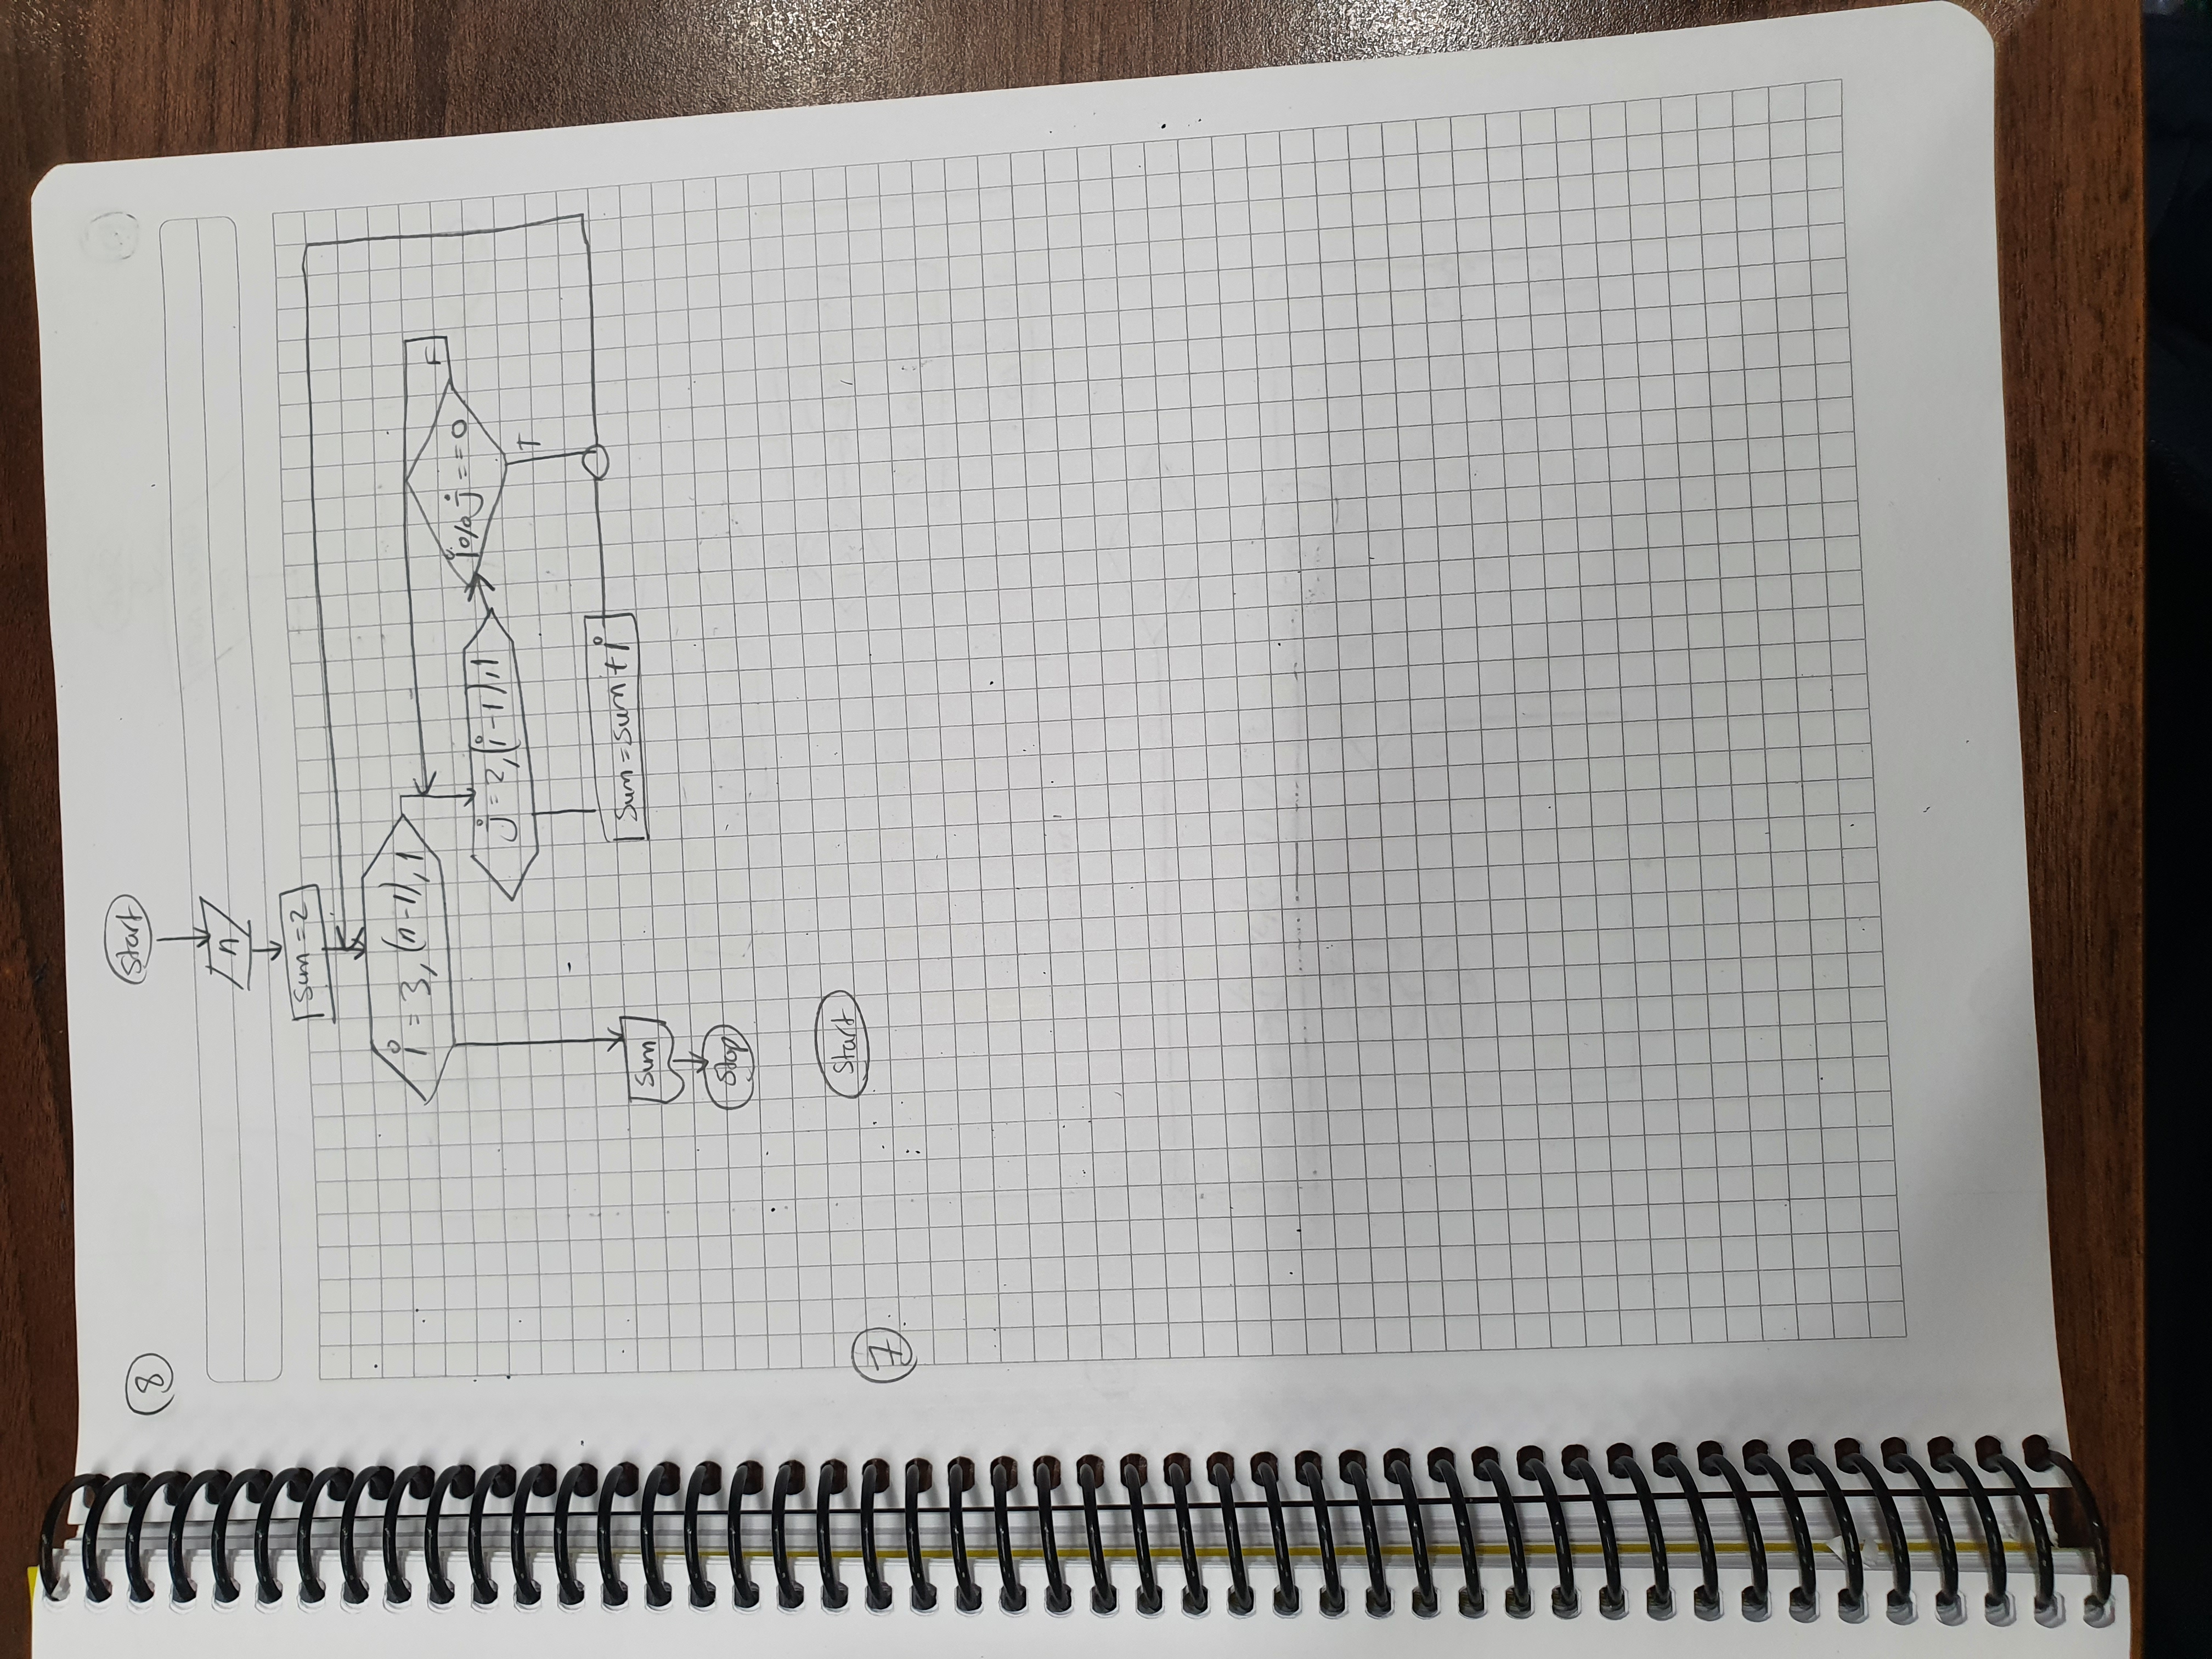 8
Start
n
Sum = 2
i = 3, (n-1), 1
j = 2, (i-1), 1
i % j == 0
F
T
Sum = Sum + i
Sum
Stop
Start
7